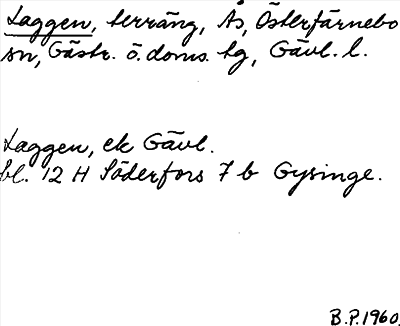 Laggen, terräng, Ås, Österfärnebo
sn, Gästr. ö. doms. tg, Gävl. l.
Laggen, ek Gävl.
bl. 12 H Söderfors 7 b Gysinge.
B.P. 1960.